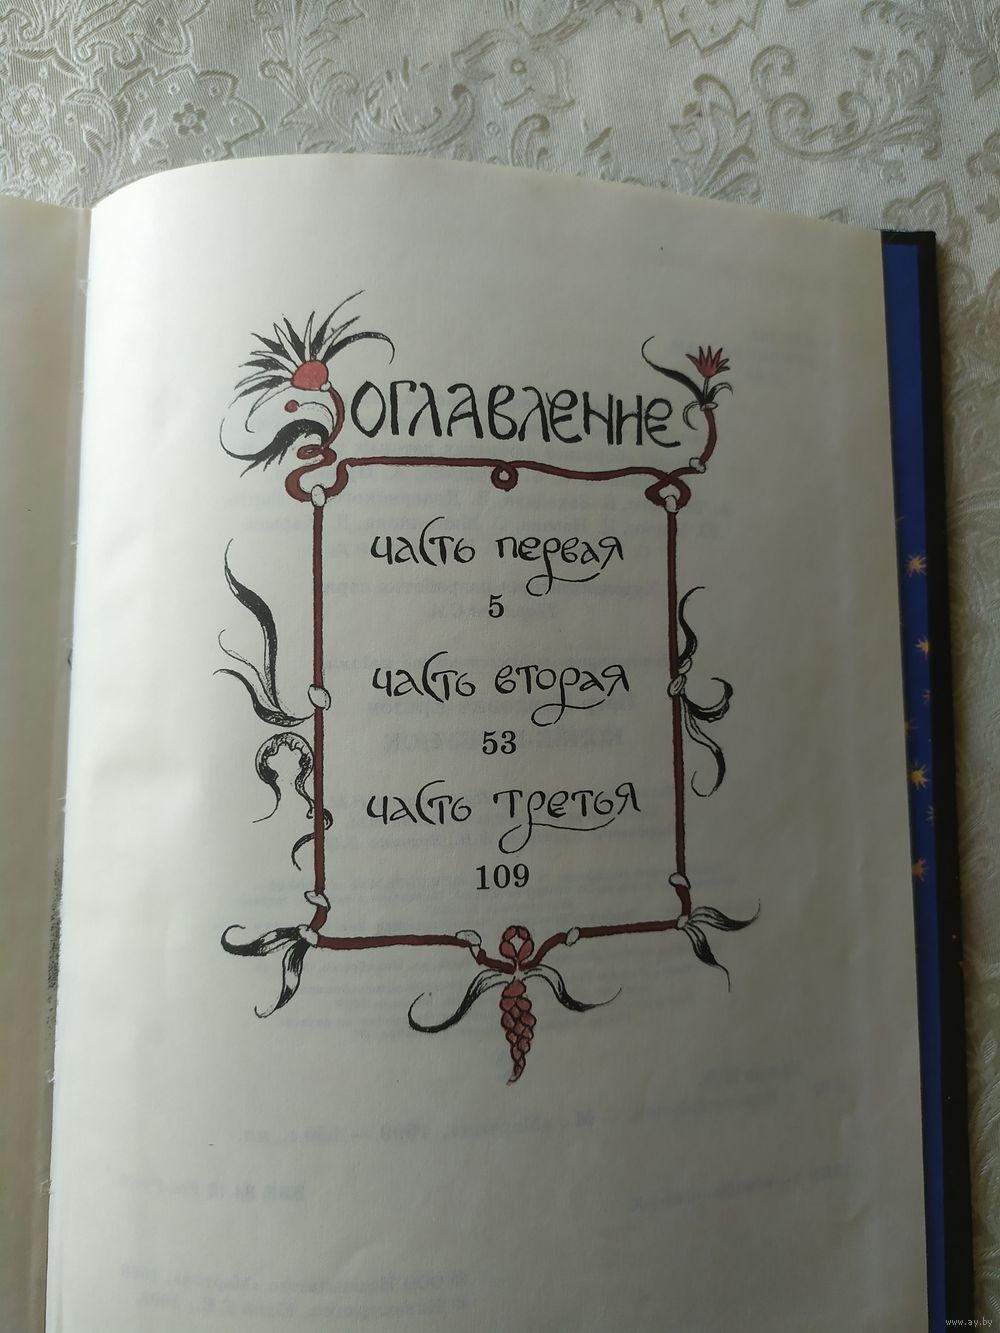 ОГЛАВЛЕНИЕ
часть первая
5
часть вторая
53
часть третья
109
www.ay.by